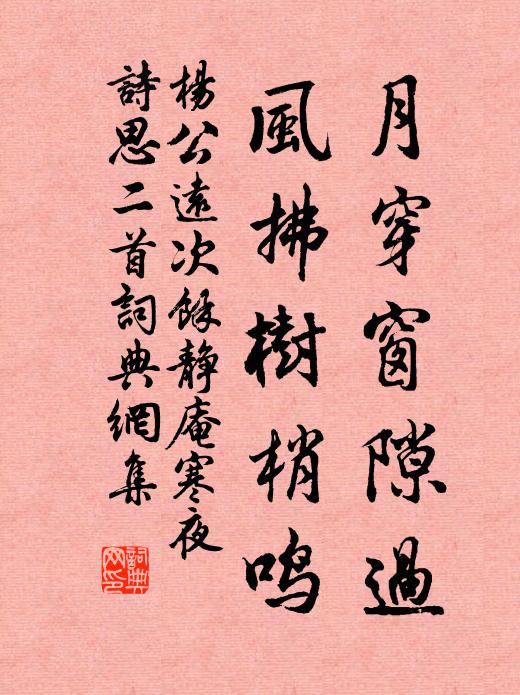 月穿窗隙過
風拂樹梢鳴
楊公遠次餘靜庵寒夜
詩思二首詞典網集
詞典
网印